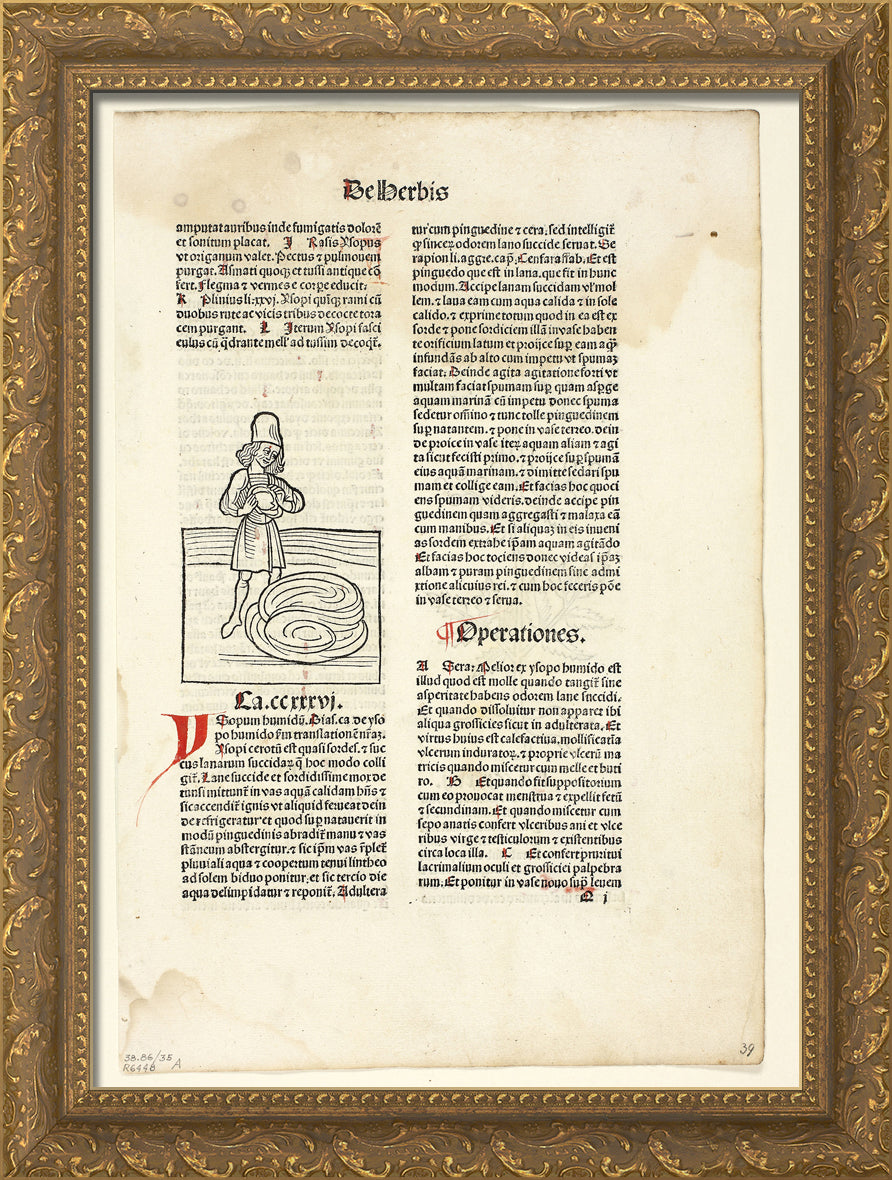 De Herbis
amputat auribus inde fumigatis dolorē
et sonitum placat. I Rasis Ysopus
vt origanum valet. Pectus ⁊ pulmonem
purgat. Asmati quoqꝫ et tussi antique cō
fert. Flegma ⁊ vermes e corpe educit.
K Plinius li. xxvj. Ysopi quīqꝫ rami cū
duobus rute ac vicis tribus decocte tora
cem purgant. L Iterum Ysopi fasci
culus cū q̄drante mell' ad tussim decoqr̄.
Ca. ccxxxvj.
YSopum humidū. Dias. ca. de yso
po humido ẜm translationē nr̄aꝫ.
Ysopi cerotū est quasi sordes. ⁊ suc
cus lanarum succidaꝝ q̄ hoc modo colli
gir̄. Lane succide et sordidissime mox de
tunsi mittunt̄ in vas aquā calidam hn̄s ⁊
sic accendir̄ ignis vt aliquid ferueat dein
de refrigeratur et quod sup̱ natauerit in
modū pinguedinis abradir̄ manu ⁊ vas
stāneum abstergitur. ⁊ sic ip̄m vas r̄plet̄
pluuiali aqua ⁊ coopertum tenui lintheo
ad solem biduo ponitur. et sic tercio die
aqua delimpidatur ⁊ reponit̄. Adultera
tur cum pinguedine ⁊ cera. sed intelligit̄
ꝙ sinceꝝ odorem lano succide seruat. Se
rapion li. aggre. cap̄. Cenfaraffab. Et est
pinguedo que est in lana. que fit in hunc
modum. Accipe lanam succidam vl' mol
lem. ⁊ laua eam cum aqua calida ⁊ in sole
calido. ⁊ exprime totum quod in ea est ex
sorde ⁊ pone sordiciem illā in vase haben
te orificium latum et proijce sup̱ eam aq̄ꝫ
infundās ab alto cum impetu vt spumaꝫ
faciat. Deinde agita agitatione forti vt
multam faciat spumam sup̱ quam asp̱ge
aquam marinā cū impetu donec spuma
sedetur om̄ino ⁊ tunc tolle pinguedinem
sup̱ natantem. ⁊ pone in vase terreo. dein
de proice in vase iteꝝ aquam aliam ⁊ agi
ta sicut fecisti primo. ⁊ proijce sup̱ spumā
eius aquā marinam. ⁊ dimitte sedari spu
mam et collige eam. Et facias hoc quoci
ens spumam videris. deinde accipe pin
guedinem quam aggregasti ⁊ malaxa eā
cum manibus. Et si aliquaꝫ in eis inueni
as sordem extrahe ip̄am aquam agitādo
Et facias hoc tociens donec videas ip̄aꝫ
albam ⁊ puram pinguedinem sine admi
xtione alicuius rei. ⁊ cum hoc feceris pōe
in vase terreo ⁊ serua.
¶Operationes.
A Sera. Melior ex ysopo humido est
illud quod est molle quando tangit̄ sine
asperitate habens odorem lane succidi.
Et quando dissoluitur non apparet ibi
aliqua grossicies sicut in adulterata. Et
virtus huius est calefactiua. mollificatia
vlcerum induratoꝝ. ⁊ proprie vlcerū ma
tricis quando miscetur cum melle et buti
ro. B Et quando fit suppositorium
cum eo prouocat menstrua ⁊ expellit fetū
⁊ secundinam. Et quando miscetur cum
sepo anatis confert vlceribus ani et vlce
ribus virge ⁊ testiculorum ⁊ existentibus
circa loca illa. C Et confert pruritui
lacrimalium oculi et grossiciei palpebra
rum. Et ponitur in vase nouo sup̱ leuem
Q j
38.86/35 A
R6448
39